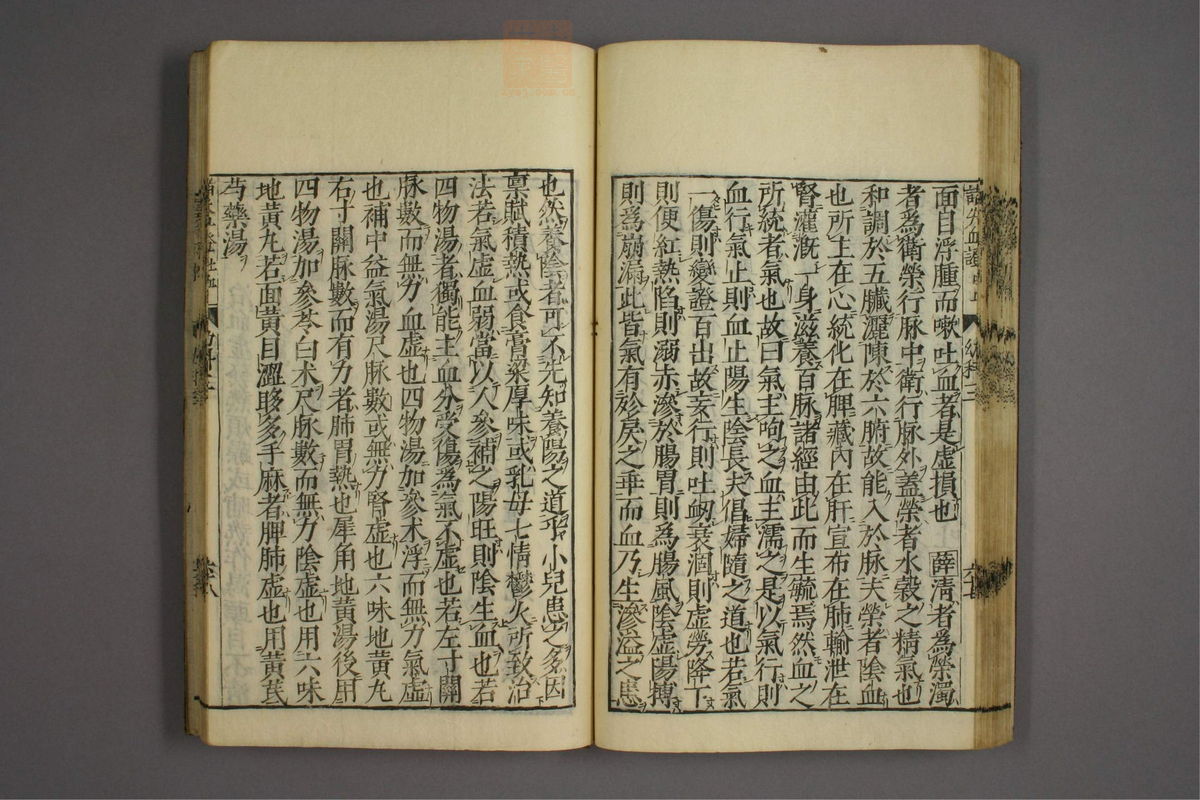 面目浮腫而嗽吐血者是虛損也 薛清者爲榮濁
者爲衛榮行脉中衛行脉外蓋榮者水穀之精氣也
和調於五臟灑陳於六腑故能入於脉夫榮者陰血
也所主在心統化在脾藏內在肝宣布在肺輸泄在
腎灌漑一身滋養百脉諸經由此而生毓焉然血之
所統者氣也故曰氣主呴之血主濡之是以氣行則
血行氣止則血止陽生陰長夫倡婦隨之道也若氣
一傷則變證百出故妄行則吐衂衰涸則虛勞降下
則便紅熱陷則溺赤滲於腸胃則爲腸風陰虛陽搏
則爲崩漏此皆氣有診戾之乖而血乃生滲溢之患
也然養陰者可不先知養陽之道乎小兒患之多因
稟賦積熱或食膏粱厚味或乳母七情鬱火所致治
法若氣虛血弱當以人參補之陽旺則陰生血也若
四物湯者獨能主血分受傷爲氣不虛也若左寸關
脉數而無力血虛也四物湯加參术浮而無力氣虛
也補中益氣湯尺脉數或無力腎虛也六味地黃丸
右寸關脉數而有力者肺胃熱也犀角地黃湯後用
四物湯加參苓白术尺脉數而無力陰虛也用六味
地黃丸若面黃目澀眵多手麻者脾肺虛也用黃芪
芍藥湯